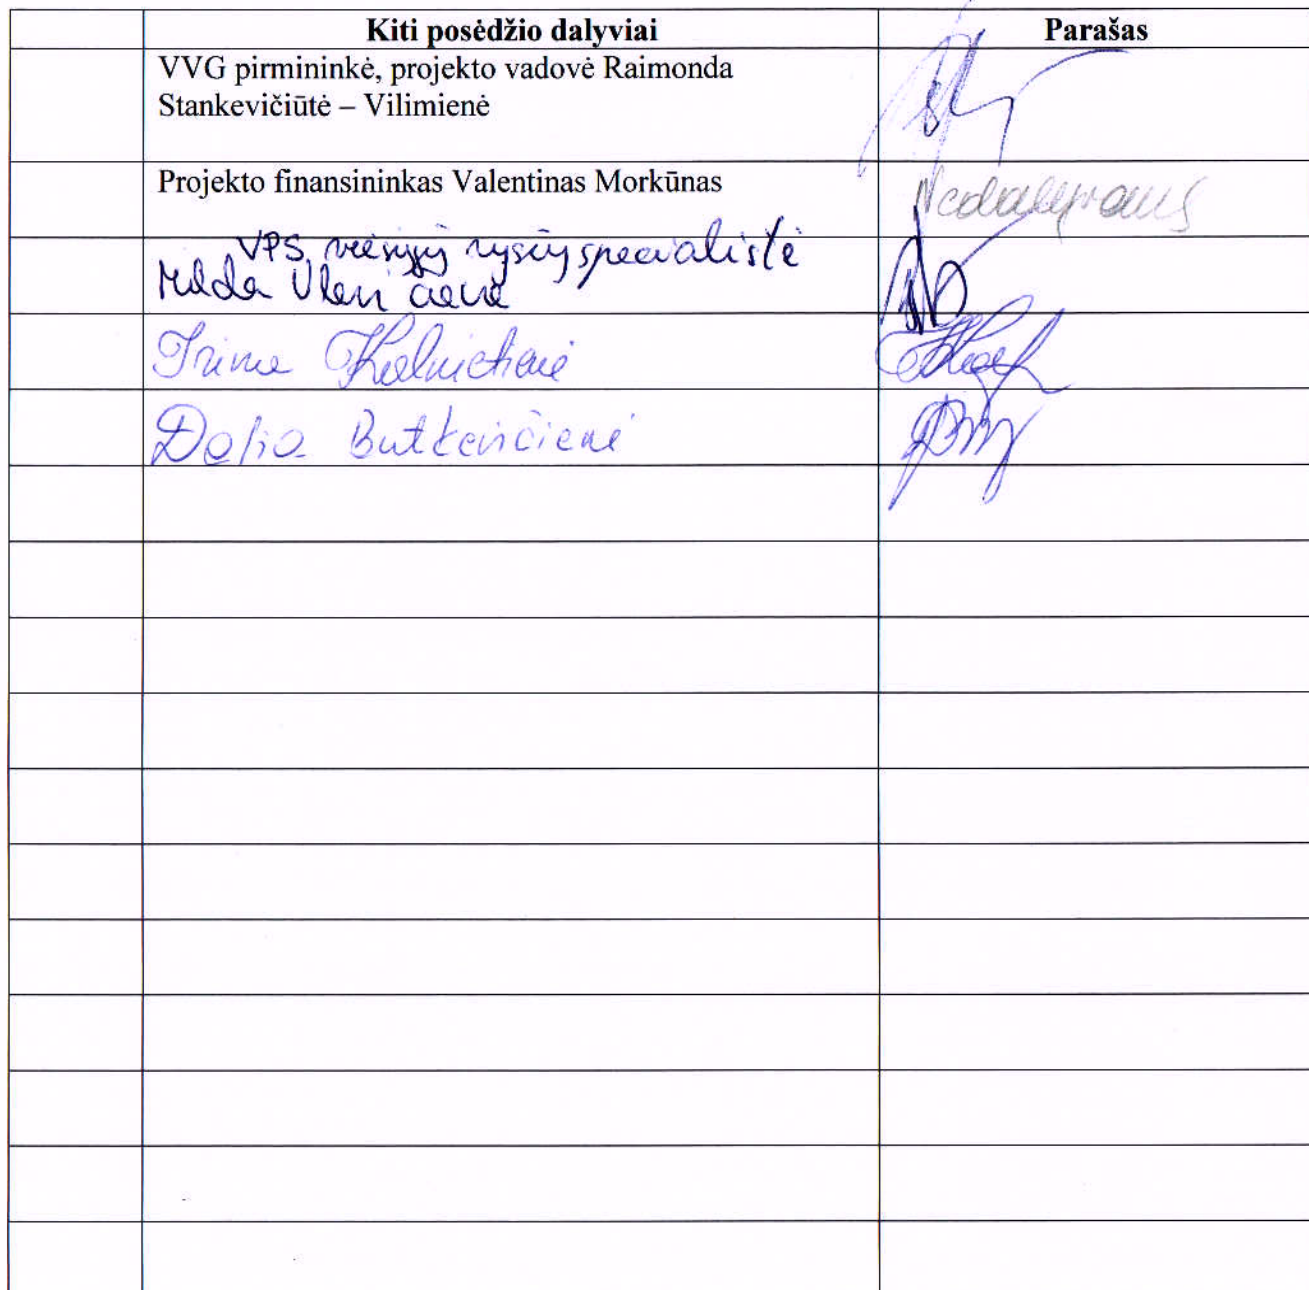 Kiti posėdžio dalyviai Parašas
VVG pirmininkė, projekto vadovė Raimonda
Stankevičiūtė – Vilimienė
Projekto finansininkas Valentinas Morkūnas
VPS viešųjų ryšių specialistė
Milda
Dalia Butkevičienė